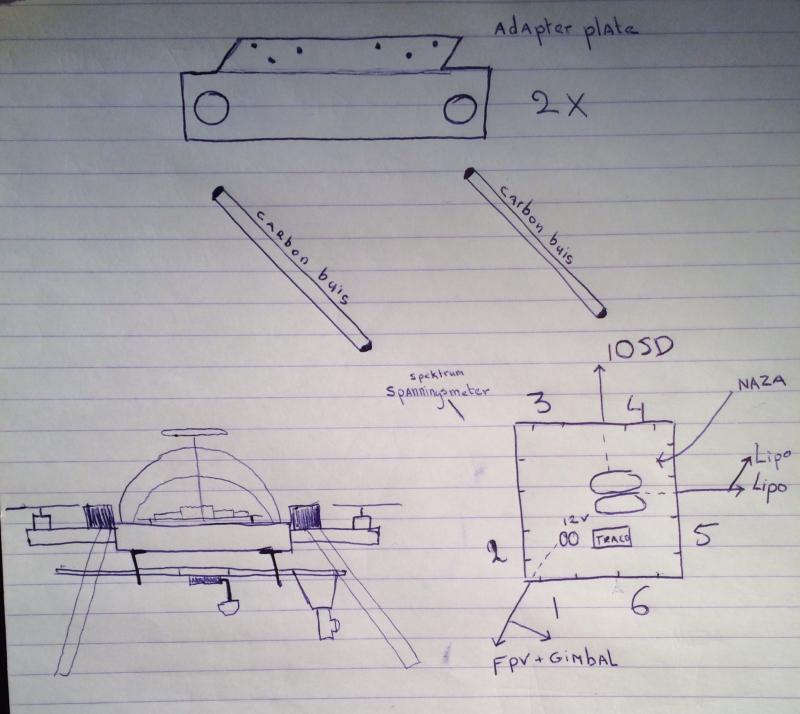 Adapter plate
2X
carbon buis
carbon buis
IOSD
spektrum
spanningsmeter
3
4
NAZA
Lipo
Lipo
12V
TRACO
2
5
1
6
FPV + GIMBAL